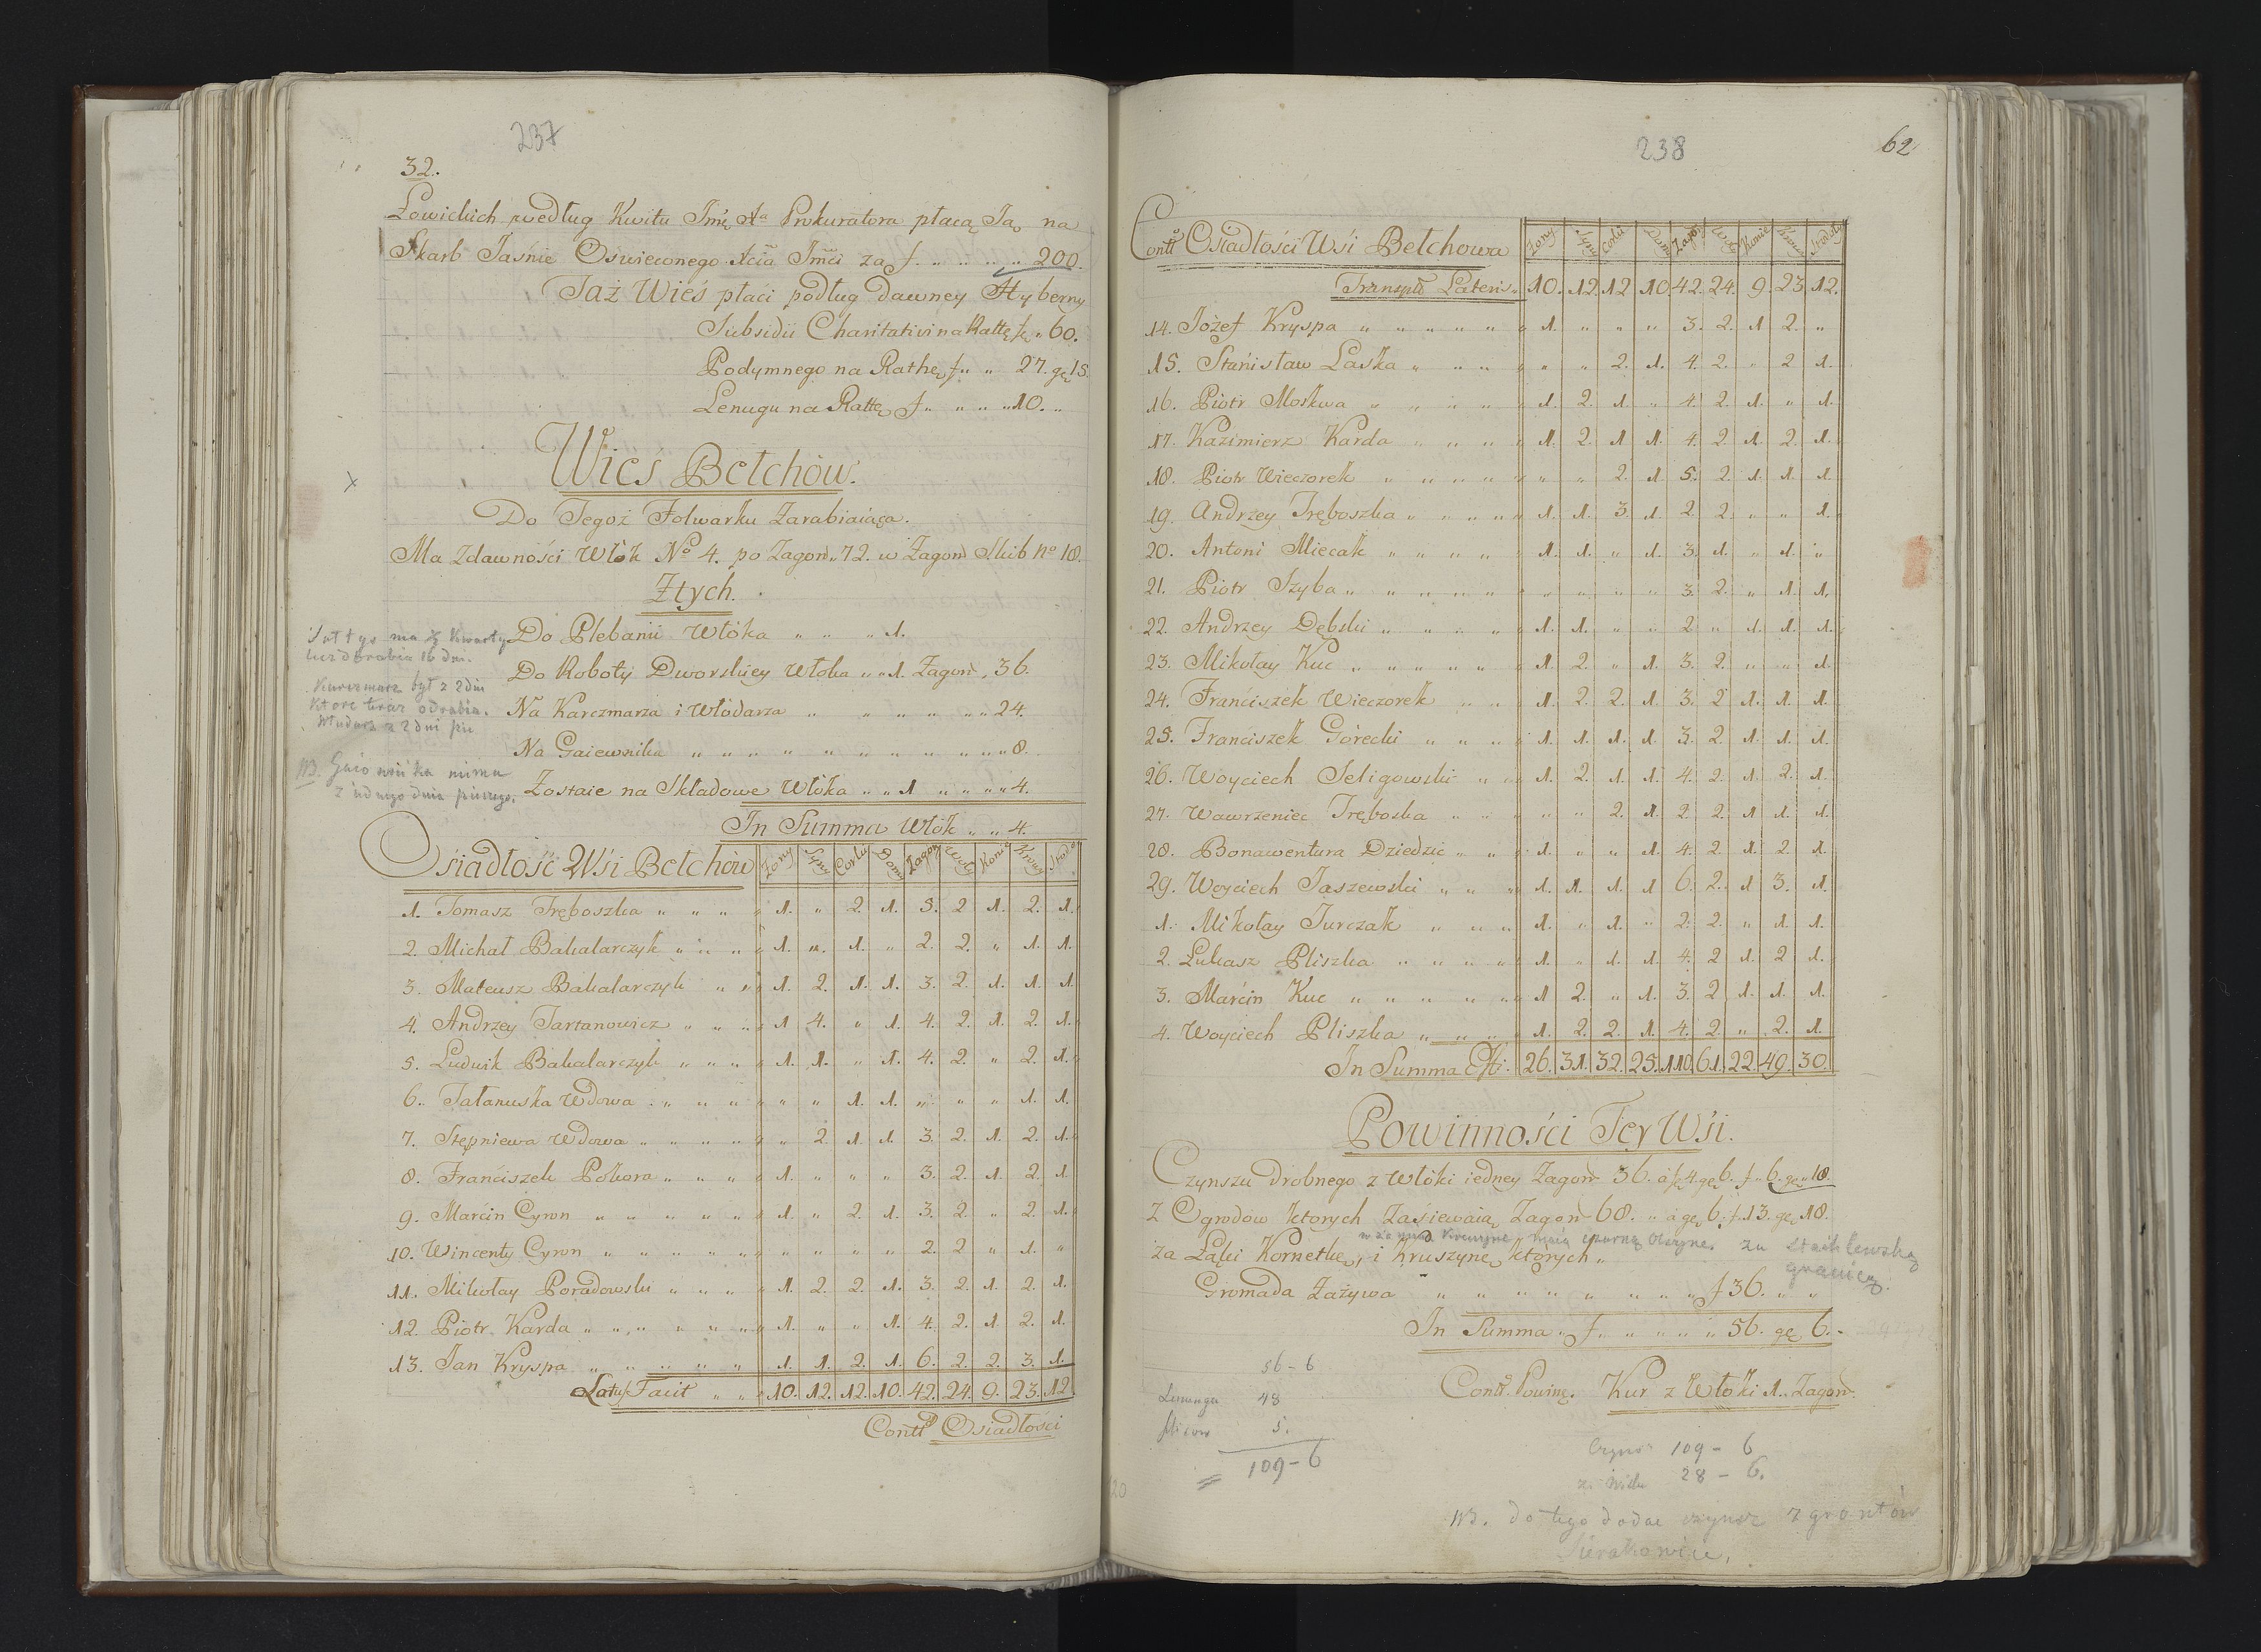 237
32.
Łowickich podług Kwitu Jmę Xa Prokuratora płacą Ja na
Skarb Jaśnie Oświeconego Xcia Jmci za f. „ „ „ „ 200.
Taż Wieś płaci podług dawney Hyberny
Subsidii Charitativi na Rattę f. „ 60.
Podymnego na Rathę f. „ „ 27. gę 15.
Lenugu na Rattę f. „ „ „ „ 10. „
Wies Bełchów.
Do Tegoż Folwarku Zarabiaiąca.
Ma Zdawności Włók No 4. po Zagon. 72. w Zagon Skib no 18.
Ztych.
Do Plebanii Włóka „ „ „ 1.
Do Roboty Dworskiey Włóka „ „ 1. Zagon. 36.
Na Karczmarza i Włódarza „ „ „ „ „ „ 24.
Na Gaiewnika „ „ „ „ „ „ „ „ „ „ 8.
Zostaie na Składowe Włóka „ „ 1 „ „ „ „ 4.
In Summa Włók „ „ 4.
ma 3 kwarty
odrabia 16 dni.
Karczmarz był z 2 dni
Ktore teraz odrabia.
z 2 dni
NB. Gaiownika nima
żadnego dnia pieszego.
Osiadłość Wsi Bełchów Żony Syny Corki Domy Zagony Woły Konie Krowy
1. Tomasz Tręboszka „ „ „ „ 1. „ 2. 1. 5. 2 1. 2. 1.
2. Michał Bakalarczyk „ „ „ „ 1. „ 1. „ 2. 2. „ 1. 1.
3. Mateusz Bakalarczyk „ „ 1. 2. 1. 1. 3. 2. 1. 1. 1.
4. Andrzey Tartanowicz „ „ „ 1 4. „ 1. 4. 2. 1. 2. 1.
5. Ludwik Bakalarczyk „ „ „ 1. 1. „ 1. 4. 2. „ 2. 1.
6. Tatanuska Wdowa „ „ „ „ „ „ 1. 1. „ „ „ 1. 1.
7. Stępniewa Wdowa „ „ „ „ „ 2. 1. 1. 3. 2. 1. 2. 1.
8. Franciszek Pokora „ „ „ 1. „ „ „ 3. 2. 1. 2. 1
9. Marcin Cyron „ „ „ „ „ 1. „ 2. 1. 3. 2. „ 2. 1.
10. Wincenty Cyron „ „ „ „ „ „ „ „ „ 2. 2 „ 1. „
11. Mikołay Poradowski „ „ „ 1. 2. 2. 1. 3. 2. 1. 2. 1.
12. Piotr Karda „ „ „ „ „ „ 1. „ „ 1. 4. 2. 1. 2. 1.
13. Jan Kryspa „ „ „ „ „ 1. 1. 2. 1. 6. 2. 2. 3. 1.
Latus Facit „ „ 10. 12. 12. 10. 42. 24. 9. 23. 12
Contt Osiadłości
238
62
Contt Osiadłości Wsi Bełchowa Żony Syny Corki Domy Zagony Woły Konie Krowy
Transpt Lateris 10. 12. 12 10 42. 24. 9. 23 12.
14. Jozef Kryspa „ „ „ „ „ 1. „ „ „ 3. 2. 1 2. „
15. Stanisław Laska „ „ „ „ „ „ 2. 1. 4. 2. „ 2 1.
16. Piotr Moskwa „ „ „ „ „ 1. 2. 1. „ 4. 2. 1. „ 1.
17. Kazimierz Karda „ „ „ „ 1. 2. 1 1. 4. 2 1. 2. 1.
18. Piotr Wieczorek „ „ „ „ „ „ „ 2. 1 5. 2. 1. 1. 1.
19. Andrzey Tręboszka „ „ „ „ 1. 1. 3. 1. 2. 2. „ „ 1.
20. Antoni Miecak „ „ „ „ „ 1. 1. „ 1. 3. 1. „ 1. „
21. Piotr Szyba „ „ „ „ „ „ „ „ „ 3. 2. „ 1. 1.
22. Andrzey Dębski „ „ „ „ „ 1. 1. „ „ 2 „ 1. 1. 1.
23. Mikołay Kuc „ „ „ „ „ 1. 2. „ 1. 3. 2. „ „ 1.
24. Franciszek Wieczorek „ „ „ 1. 2. 2. 1. 3. 2 1. 1. 1.
25. Franciszek Górecki „ „ „ „ 1. 1. 1. 1. 3. 2. 1. 1. 1.
26. Woyciech Seligowski „ „ 1. 2. 1. 1. 4. 2. 1. 2. 1.
27. Wawrzeniec Tręboska „ „ „ „ „ 2. 1. 2. 2. 1 1. 1.
28. Bonawentura Dziedzic „ „ „ 1. „ „ 1. 4. 2. 1. 2. 1.
29. Woyciech Jaszewski „ „ „ 1. 1. 1. 1 6. 2. 1 3. 1.
1. Mikołay Jurczak „ „ „ „ 1. „ 1. „ 2. 2. „ 1. 1.
2. Łukasz Pliszka „ „ „ „ 1. „ 1. 1. 4. 2 1. 2 1.
3. Marcin Kuc „ „ „ „ „ „ 1 2. „ 1. 3. 2. 1. 1. 1.
4. Woyciech Pliszka „ „ „ „ 1. 2. 2. 1. 4. 2. „ 2. 1.
In Summa Eft. 26. 31. 32. 25. 110. 61. 22. 49. 30.
Powinności Tey Wsi.
Czynszu drobnego z Włóki iedney Zagon 36. á f. 4. gę 6. f. 6. gę 18.
Z Ogrodów ktorych Zasiewaią Zagon 68. „ á gę 6. f. 13. gę 18.
maią czarną Olszynę. za
za Łąki Kornetkę, i Kruszynę, których „
granicą.
Gromada Zażywa „ „ „ „ „ „ „ „ f 36. „ „
In Summa „ f. „ „ „ „ „ 56. gę 6. „
56 - 6
Lenunga 48
5.
= 109 - 6
Contt. Powinę. Kur z Włóki 1. Zagon.
Czynsz 109 - 6
28 - 6.
NB. do tego dodać czynsz z grontów
Sierakowice.